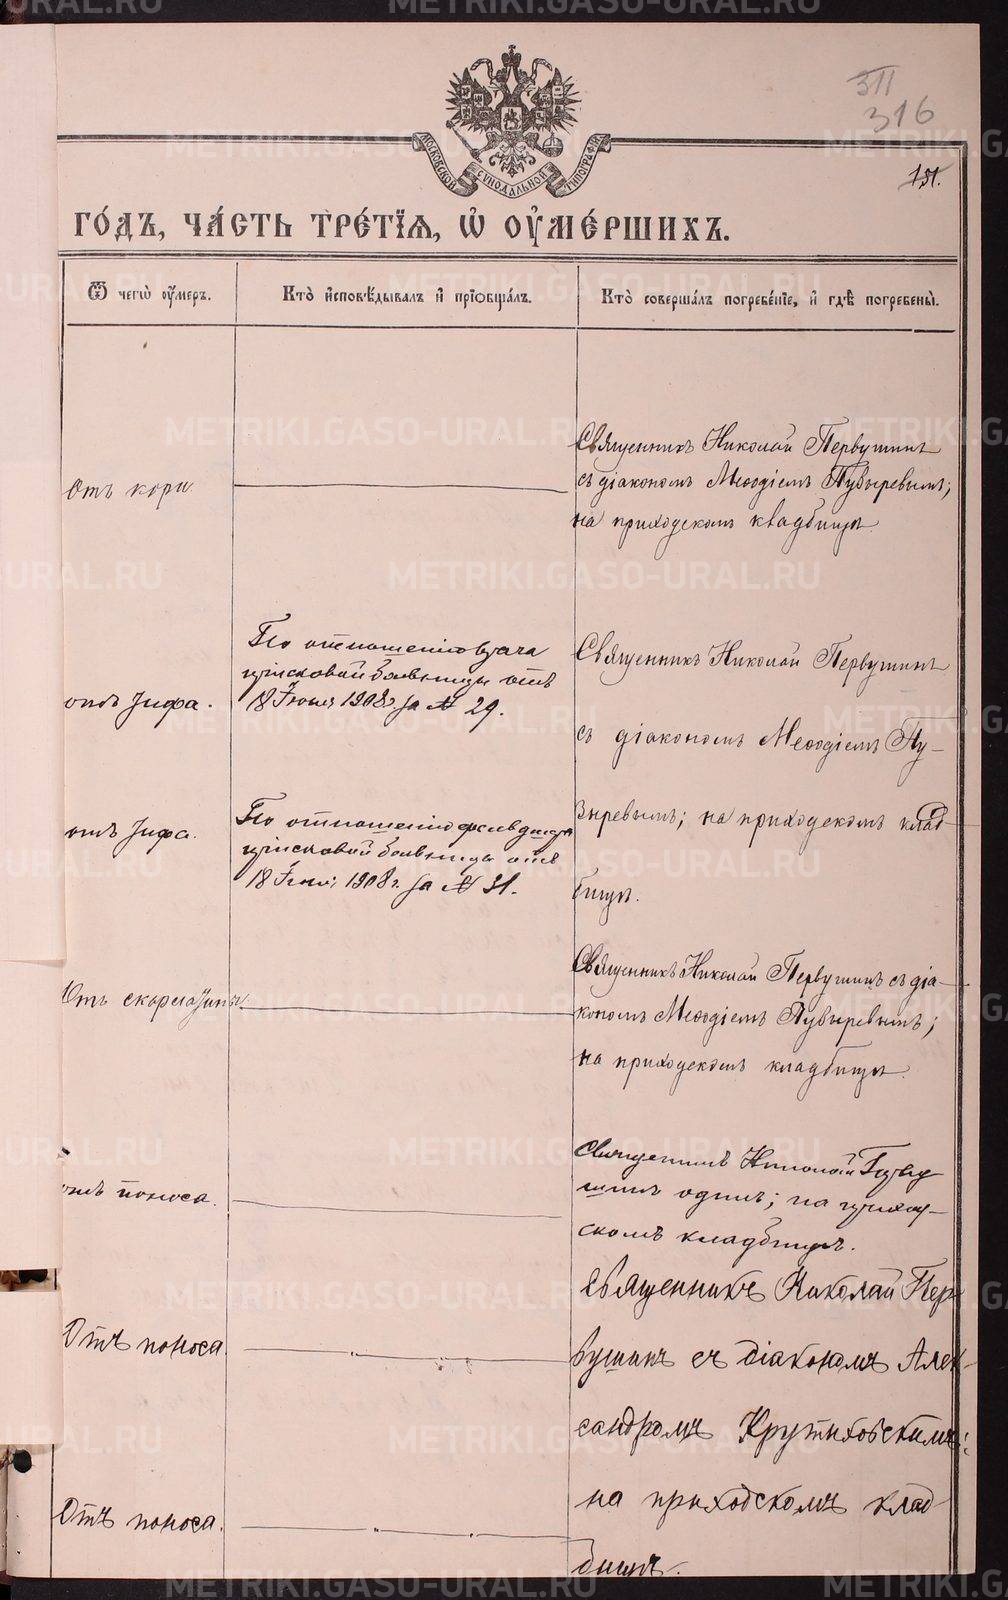 311
316
151.
МОСКОВСКОЙ СѴНОДАЛЬНОЙ ТИПОГРАФІИ
ГО́ДЪ, ЧА́СТЬ ТРЕ́ТЇѦ, Ѡ҆ ОУ҆МЕ́РШИХЪ.
Ѿ чегѡ̀ оу҆́меръ.
Кто̀ и҆сповѣ́дывалъ и҆ прїѻбща́лъ.
Кто̀ соверша́лъ погребе́нїе, и҆ гдѣ̀ погребены̀.
Отъ кори.
Священникъ Николай Первушинъ
съ діакономъ Меѳодіемъ Пузыревымъ;
на приходскомъ кладбищѣ
отъ тифа.
По отношенію врача
пріисковой больницы отъ
18 Іюня 1908 г. за № 29.
Священникъ Николай Первушинъ
съ діакономъ Меѳодіемъ Пу-
зыревымъ; на приходскомъ клад-
бищѣ.
отъ тифа.
По отношенію фельдшера
пріисковой больницы отъ
18 Іюня 1908 г. за № 31.
Отъ скарлатины
Священникъ Николай Первушинъ съ діа-
кономъ Меѳодіемъ Пузыревымъ;
на приходскомъ кладбищѣ.
отъ поноса.
Священникъ Николай Перву
шинъ одинъ; на приход-
скомъ кладбищѣ.
Отъ поноса.
Священникъ Николай Пер
вушинъ съ діакономъ Алек-
сандромъ Крутиховскимъ:
на приходскомъ клад-
бищѣ.
Отъ поноса.
METRIKI.GASO-URAL.RU